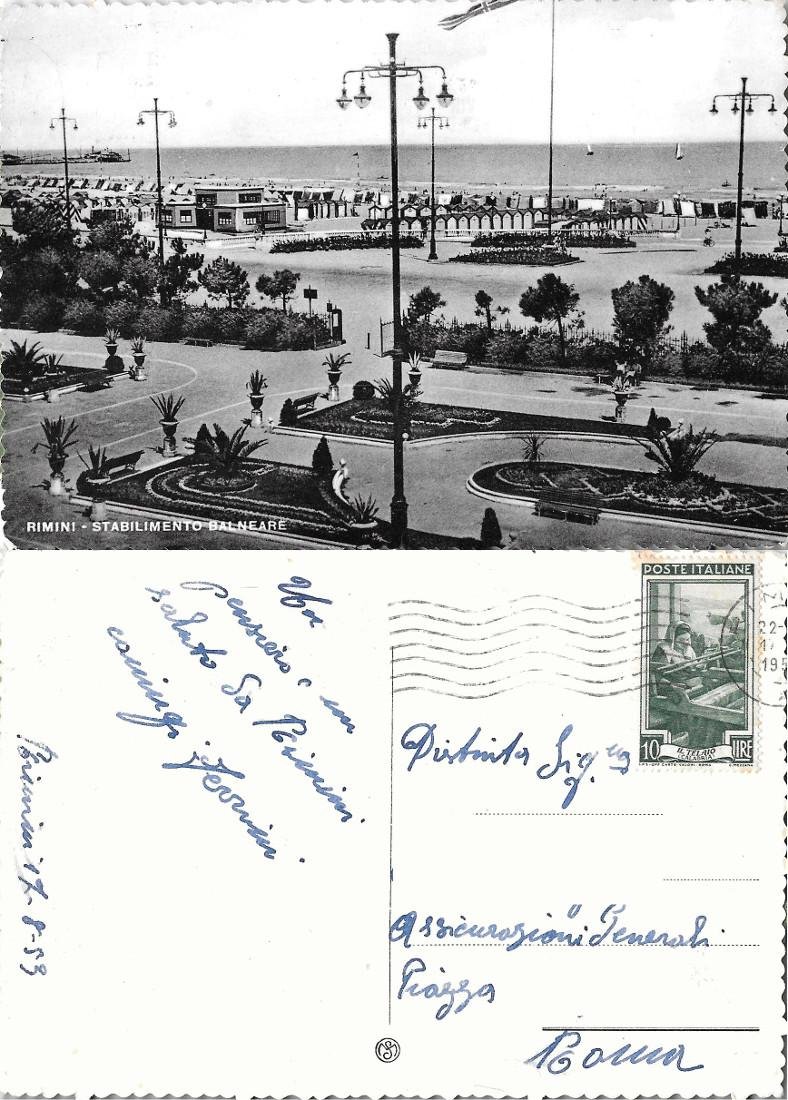 RIMINI - STABILIMENTO BALNEARE
Un
pensiero e un
saluto da Rimini
Rimini 17-8-53
POSTE ITALIANE
22-
17
195
10 LIRE
IL TELAIO
(CALABRIA)
Distinta Sig.na
Assicurazioni Generali
Piazza
Roma